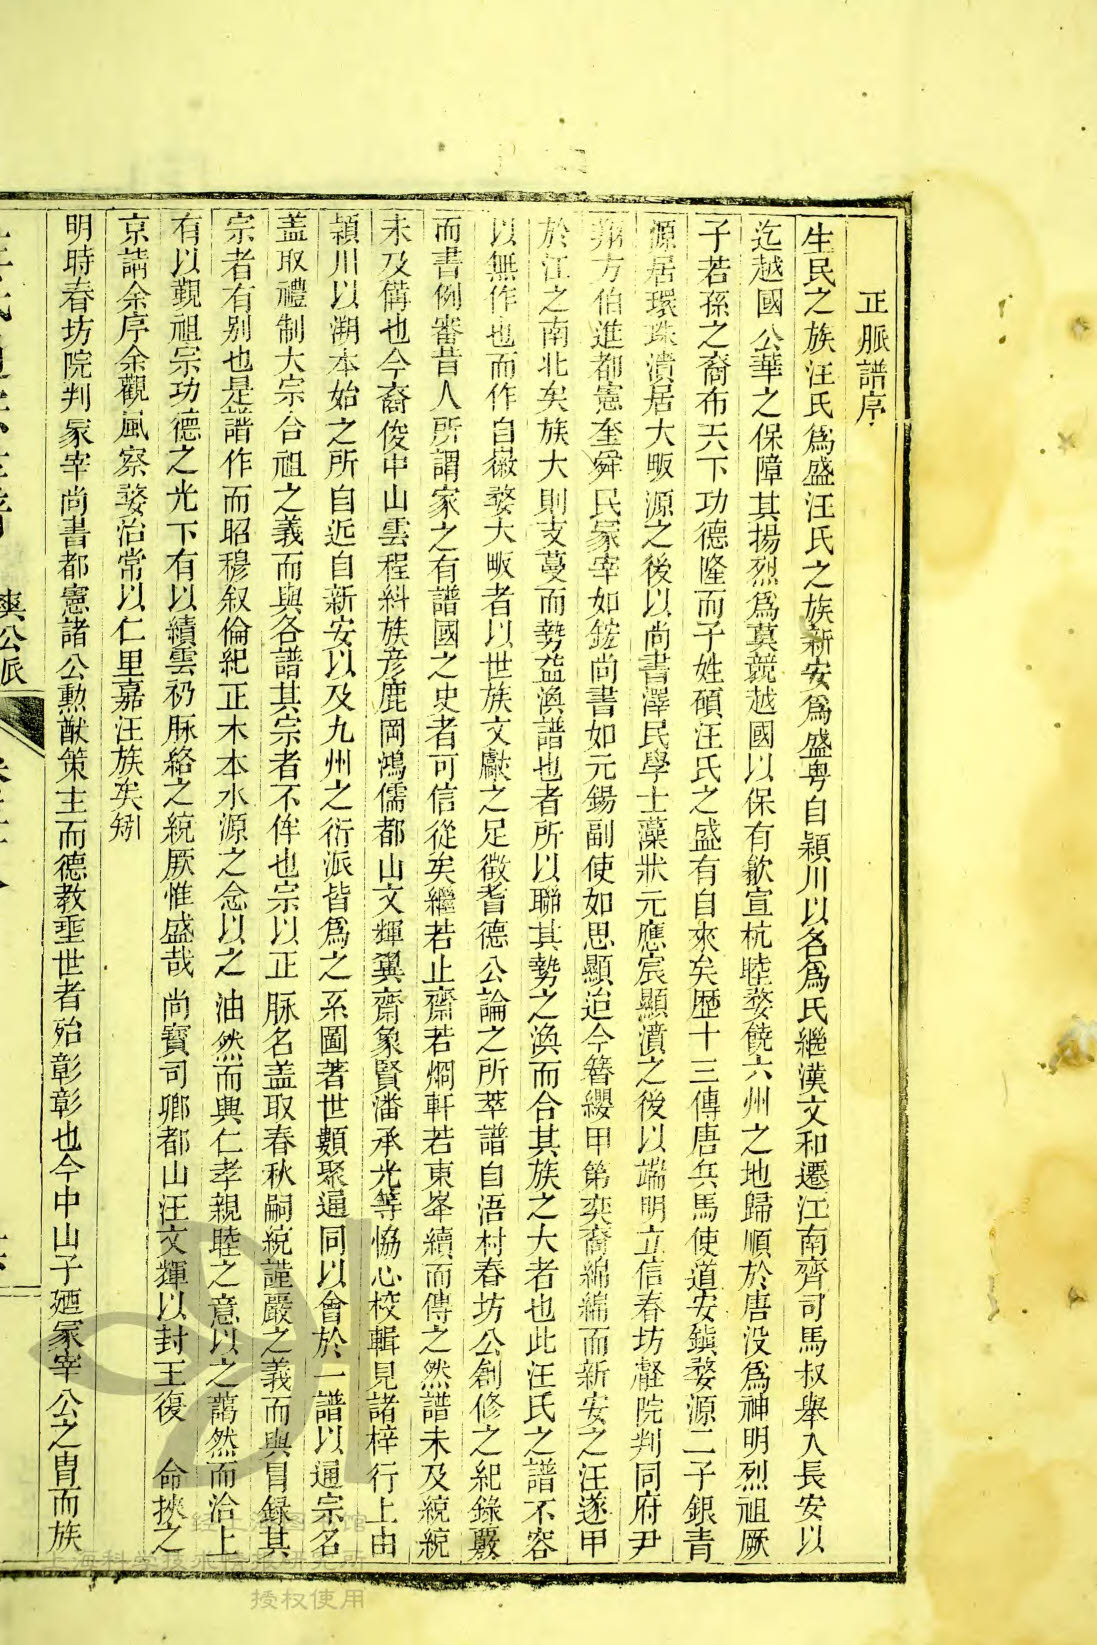 正脈譜序
生民之族汪氏爲盛汪氏之族新安爲盛粤自潁川以名爲氏繼漢文和遷江南齊司馬叔舉入長安以
迄越國公華之保障其揚烈爲莫競越國以保有歙宣杭睦婺饒六州之地歸順於唐没爲神明烈祖厥
子若孫之裔布天下功德隆而子姓碩汪氏之盛有自來矣歷十三傳唐兵馬使道安鎮婺源二子銀青
源居環珠濆居大畈源之後以尚書澤民學士藻狀元應宸顯濆之後以端明立信春坊叡院判同府尹
翔方伯進都憲奎舜民冢宰如鋐尚書如元錫副使如思顯迨今簪纓甲第奕裔綿綿而新安之汪遂甲
於江之南北矣族大則支蔓而勢益渙譜也者所以聯其勢之渙而合其族之大者也此汪氏之譜不容
以無作也而作自嶽婺大畈者以世族文獻之足徵耆德公論之所萃譜自浯村春坊公創修之紀錄嚴
而書例審昔人所謂家之有譜國之史者可信從矣繼若止齋若烱軒若東峯續而傳之然譜未及統統
未及備也今裔俊中山雲程糾族彦鹿岡鴻儒都山文輝翼齋象賢潘承光等恊心校輯見諸梓行上由
潁川以溯本始之所自近自新安以及九州之衍派皆爲之系圖著世數聚逼同以會於一譜以通宗名
盖取禮制大宗合祖之義而與各譜其宗者不侔也宗以正脈名盖取春秋嗣統謹嚴之義而與冒録其
宗者有别也是譜作而昭穆叙倫紀正木本水源之念以之油然而興仁孝親睦之意以之藹然而洽上
有以覲祖宗功德之光下有以續雲礽脈絡之統厥惟盛哉 尚寶司卿都山汪文輝以封王復 命挾之
京請余序余觀風察婺治常以仁里嘉汪族矣矧
明時春坊院判冢宰尚書都憲諸公勲猷策主而德教垂世者殆彰彰也今中山子廼冢宰公之胄而族
爽公派
上海科学技术情报研究所
授权使用